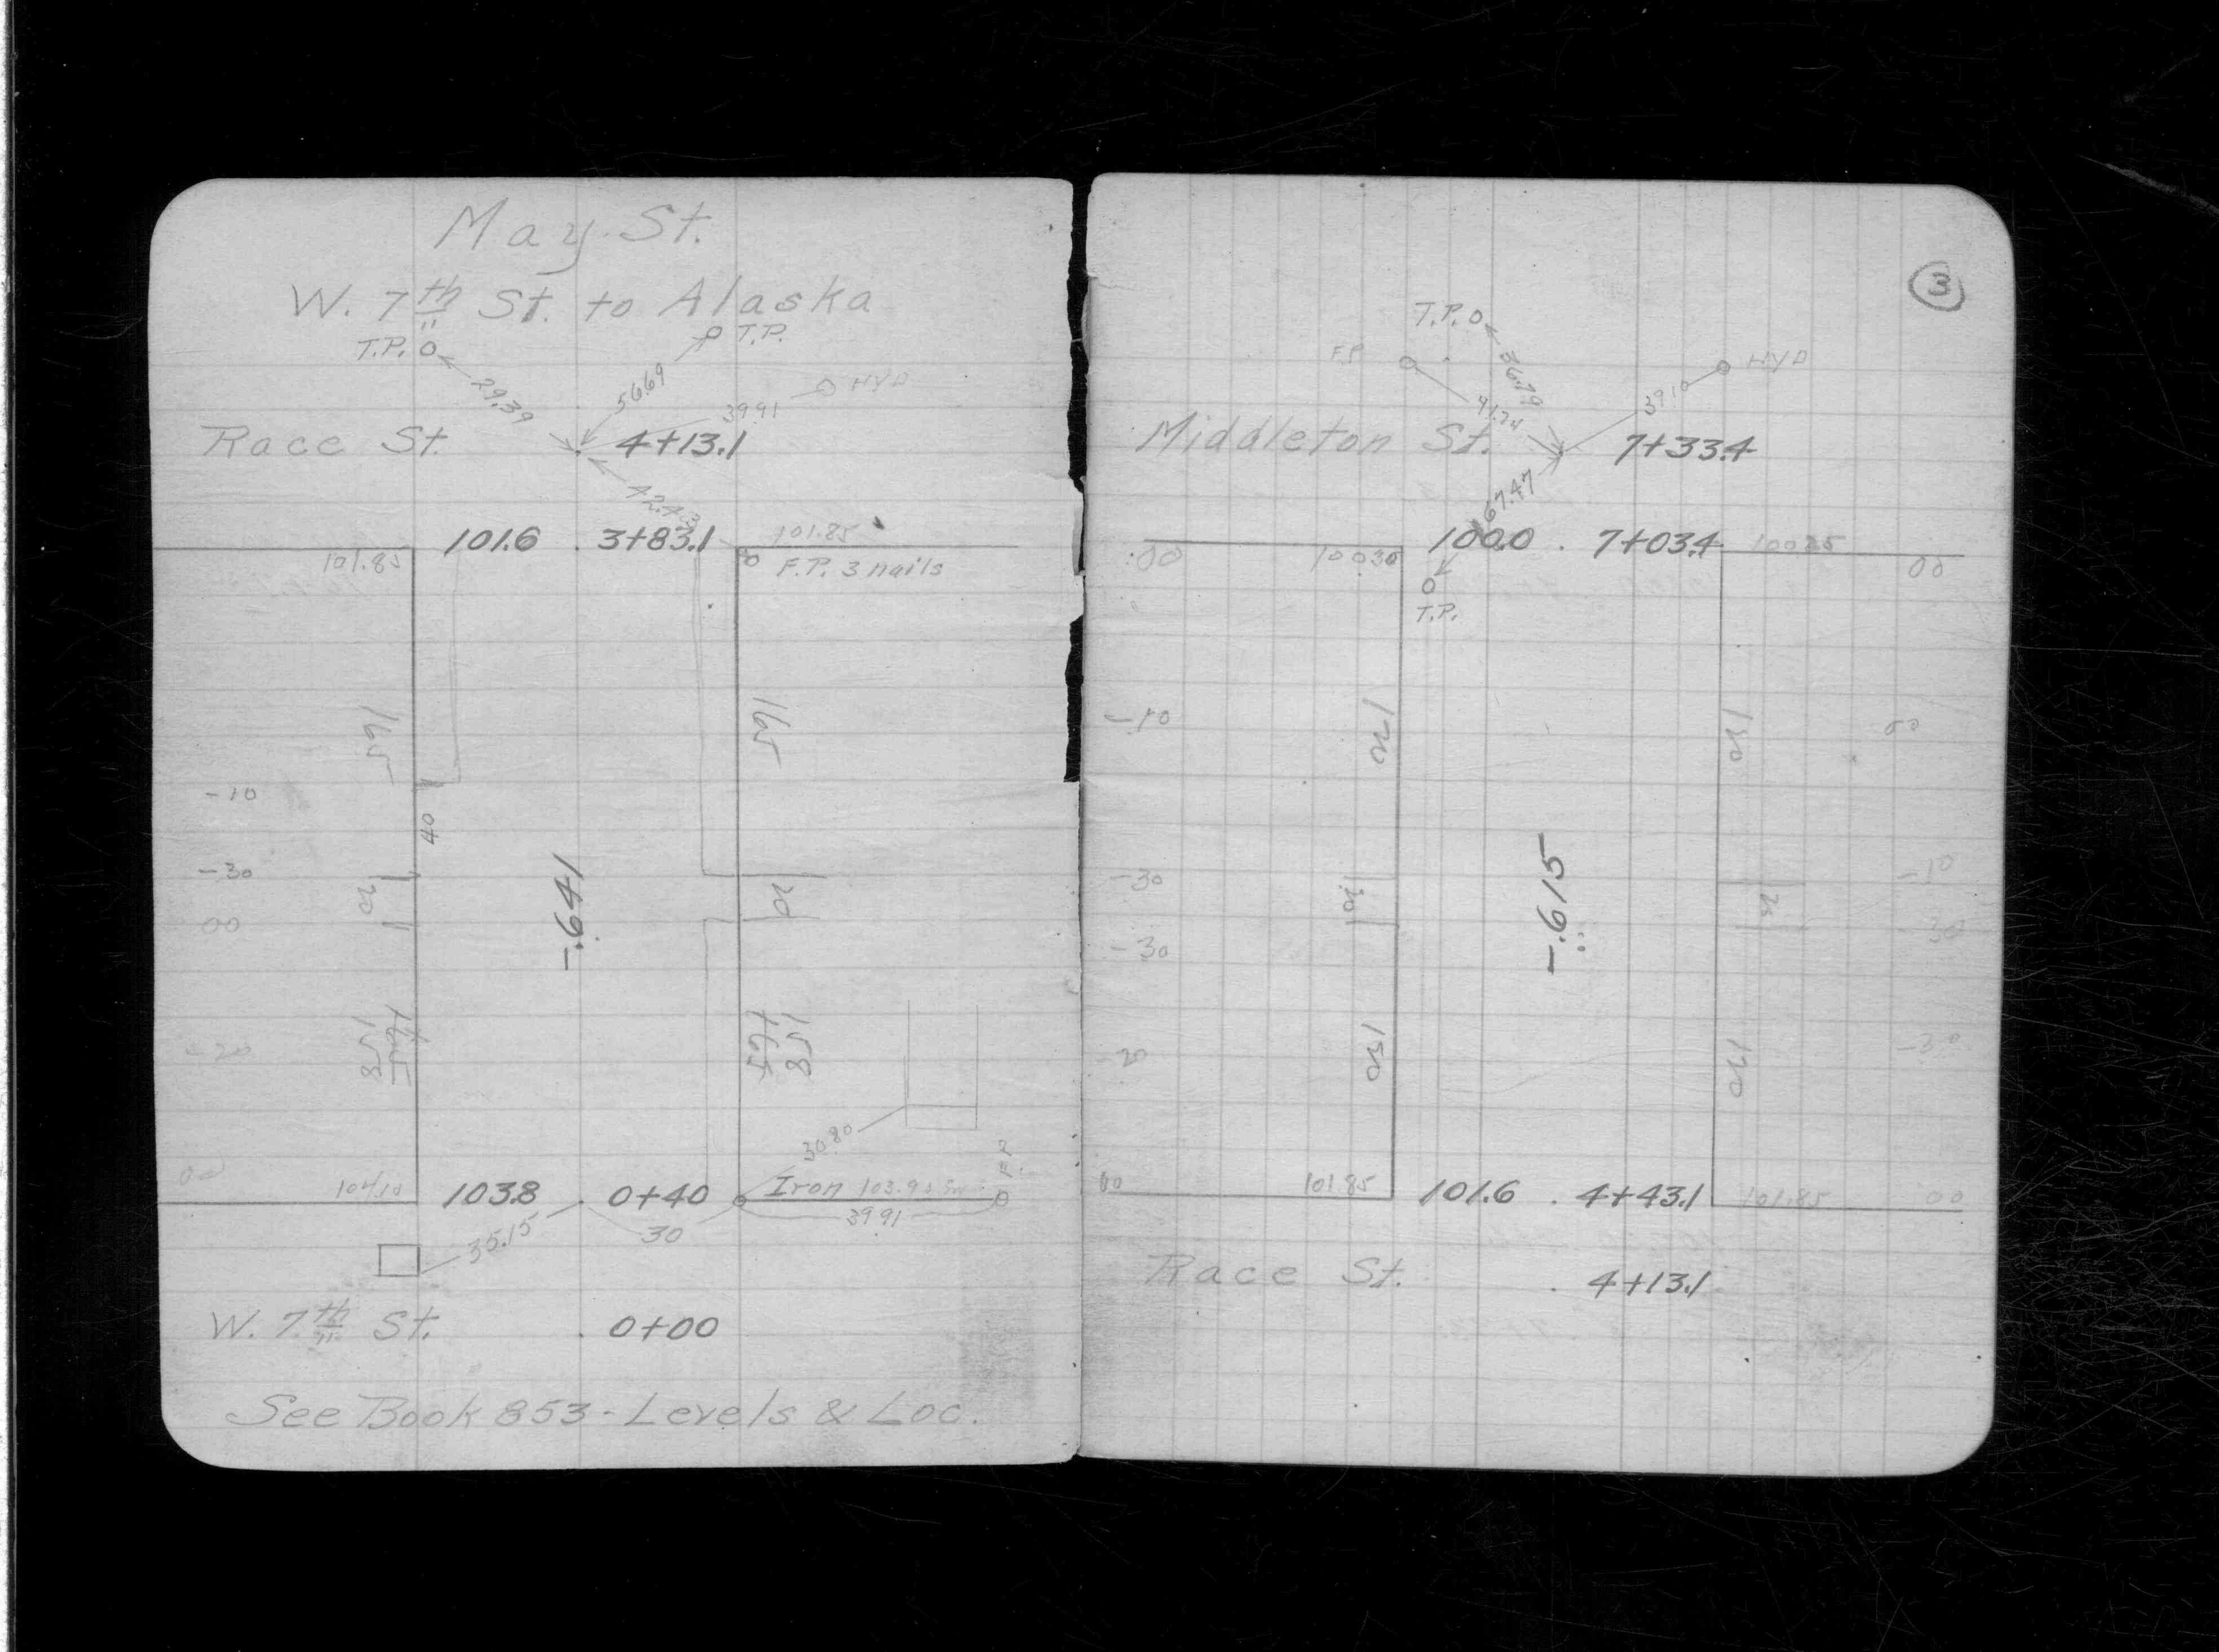 May St.
W. 7th St. to Alaska
T.P. T.P.
29.39 56.69 HYD
39 91
Race St. 4+13.1
42.43
101.6 3+83.1 101.85
101.85 F.P. 3 nails
165 165
-10
40
-30
20 20
00
-.641
165 165
158 158
-20
30.80
F.P.
00 104.10 103.8 0+40 Iron 103.90
35.15 30 39 91
W. 7th St. 0+00
See Book 853 - Levels & Loc.
3
T.P.
F.P. 36.79 HYD
41.74 39.10
Middleton St. 7+33.4
67.47
100.0 7+03.4
00 100 30 00
T.P.
-10
-30 20 -10
-.615
-30 -30
-20 -30
00 101.85 101.6 4+43.1 101.85 00
Race St. 4+13.1